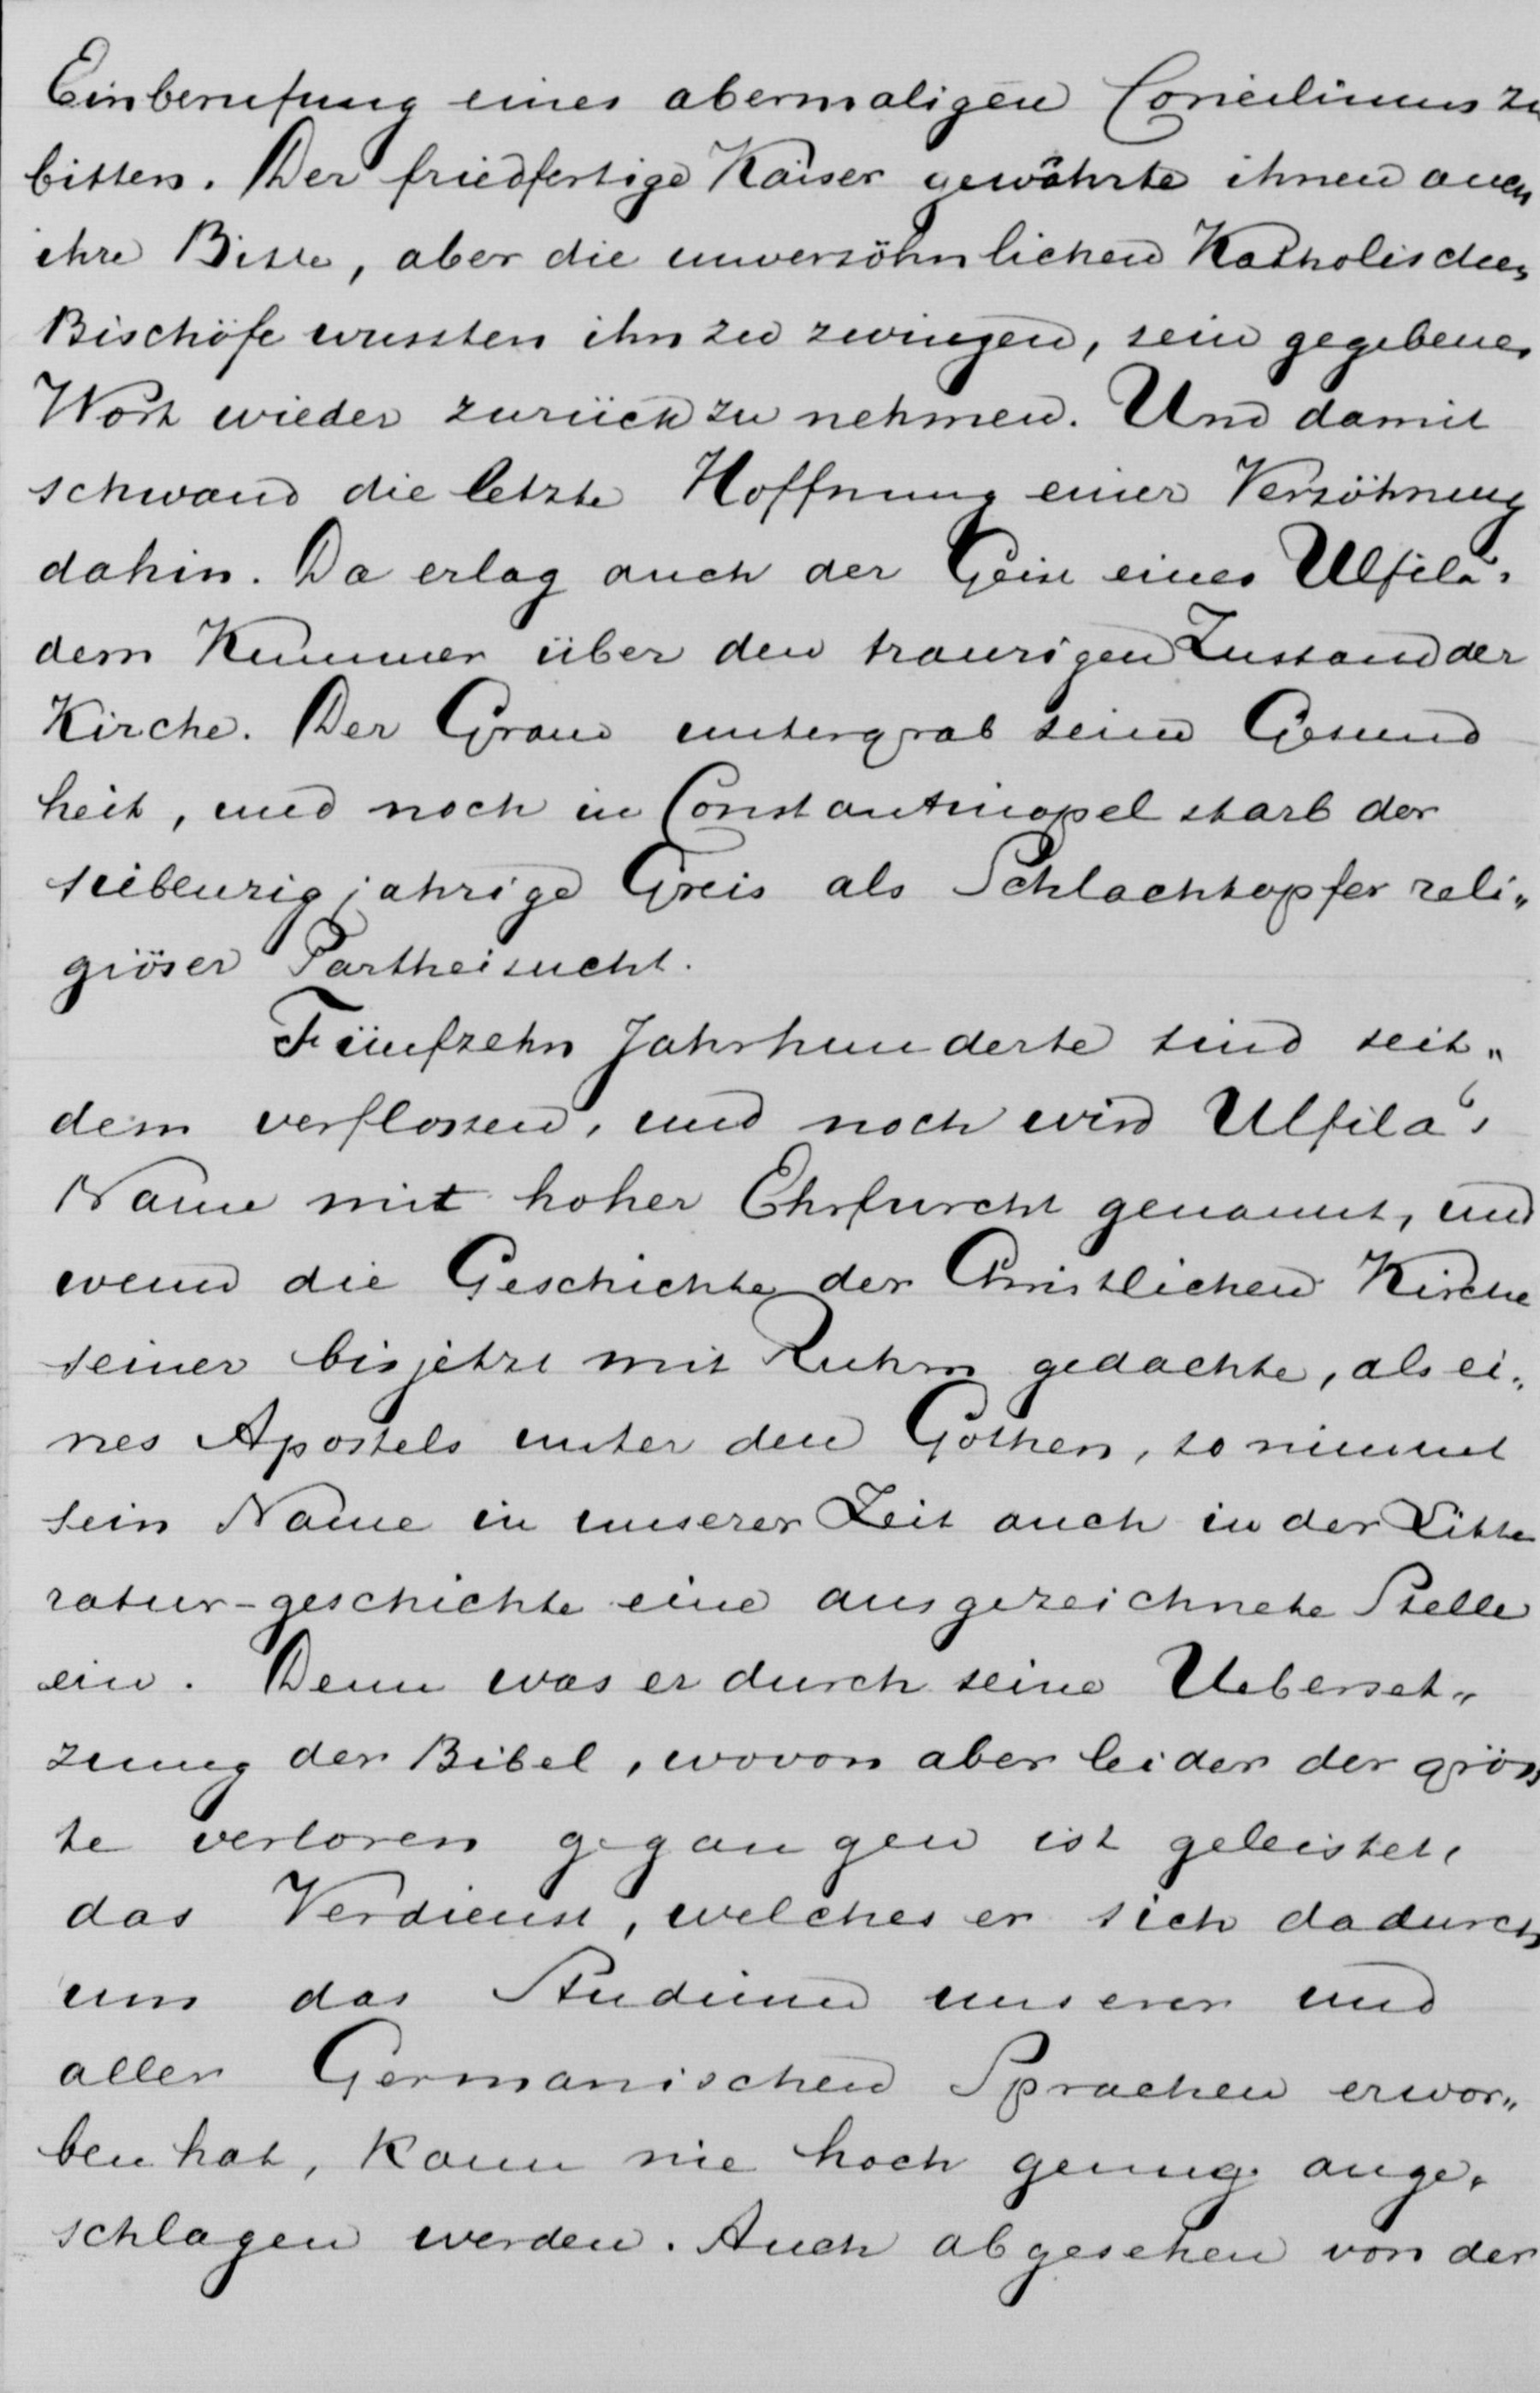 Einberufung eines abermaligen Conciliums zu
bitten. Der friedfertige Kaiser gewährte ihnen auch
ihre Bitte, aber die unversöhnlichen Katholischen
Bischöfe wussten ihn zu zwingen, sein gegebenes
Wort wieder zurück zu nehmen. Und damit
schwand die letzte Hoffnung einer Versöhnung
dahin. Da erlag auch der Geist eines Ulfila's
dem Kummer über den traurigen Zustand der
Kirche. Der Gram untergrab seine Gesund
heit, und noch in Constantinopel starb der
siebenzigjahrige Greis als Schlachtopfer reli„
giöser Partheisucht.
Fünfzehn Jahrhunderte sind seit„
dem verflossen, und noch wird Ulfila's
Name mit hoher Ehrfurcht genannt, und
wenn die Geschichte der Christlichen Kirche
seiner bisjetzt mit Ruhm gedachte, als ei„
nes Apostels unter den Gothen, so nimmt
sein Name in unserer Zeit auch in der Litte
ratur-geschichte eine ausgezeichnete Stelle
ein. Denn was er durch seine Ueberset„
zung der Bibel, wovon aber leider der gröss
te verloren gegangen ist geleistet,
das Verdienst, welches er sich dadurch
um das Studium unserer und
aller Germanischen Sprachen erwor„
ben hat, kann nie hoch genug ange„
schlagen werden. Auch abgesehen von der